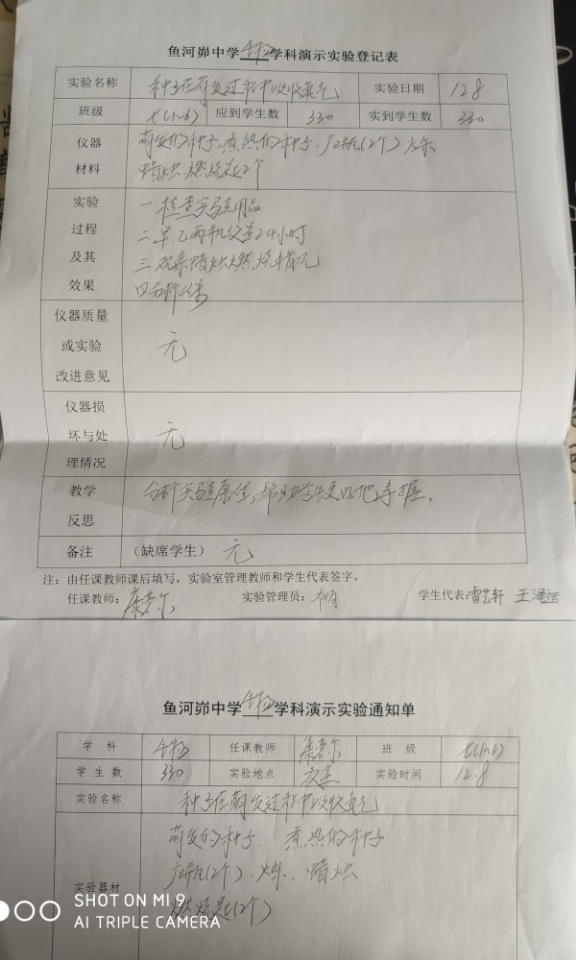 鱼河峁中学生物学科演示实验登记表
实验名称 种子在萌发过程中吸收氧气 实验日期 12.8
班级 七(1~6) 应到学生数 330 实到学生数 330
仪器 材料 萌发的种子、煮熟的种子、广口瓶(2个) 火柴
蜡烛 燃烧匙2个
实验 过程 及其 效果 一.检查实验用品
二.甲.乙两瓶放置24小时
三.观察蜡烛燃烧情况
四分析
仪器质量 或实验 改进意见 无
仪器损 坏与处 理情况 无
教学 反思 分析实验原位,帮助学生更好地掌握。
备注 (缺席学生) 无
注:由任课教师课后填写,实验室管理教师和学生代表签字。
任课教师: 实验管理员: 学生代表:雷艺轩 王
鱼河峁中学生物学科演示实验通知单
学科 生物 任课教师 班级 七(1~6)
学生数 330 实验地点 教室 实验时间 12.8
实验名称 种子在萌发过程中吸收氧气
实验器材 萌发的种子、煮熟的种子
广口瓶(2个)、火柴、蜡烛
燃烧匙(2个)
SHOT ON MI 9
AI TRIPLE CAMERA